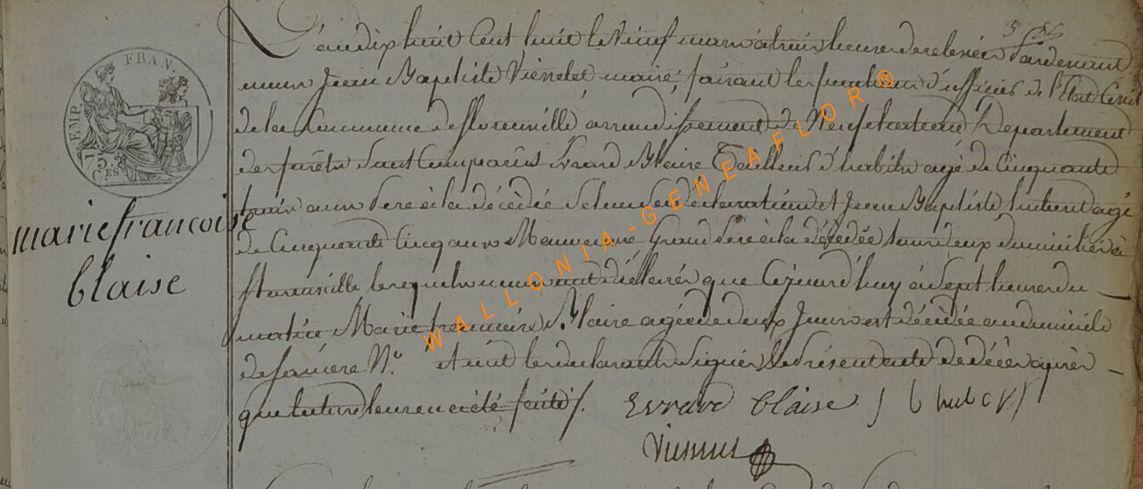 L'an dix huit Cent huit le Neuf mars à trois heures de relevée Pardevant
nous Jean Baptiste maire, faisant les fonctions d'officier de l'Etat Civil
de la Commune de florenville arrondissement de Neufchateau Département
des forêts Sont Comparus Evrard Blaise Tailleur d'habits agé de Cinquante
trois ans Pere à la décédée declaration et Jean Baptiste agé
de Cinquante Cinq ans Grand Pere à la décédée tous deux domiciliés à
florenville lesquels nous ont déclarés que Cejourd'huy à Sept heures du
matin Marie francoise Blaise agée de deux Jours est décédée au domicile
de Son Père N.º et ont les declarants Signés le Présent acte de décès après
que lecture leur en a été faite
marie francoise
blaise
Evrard blaise
FRAN.
EMP.
75
C.ES
WALLONIA-GENEAFLOR®